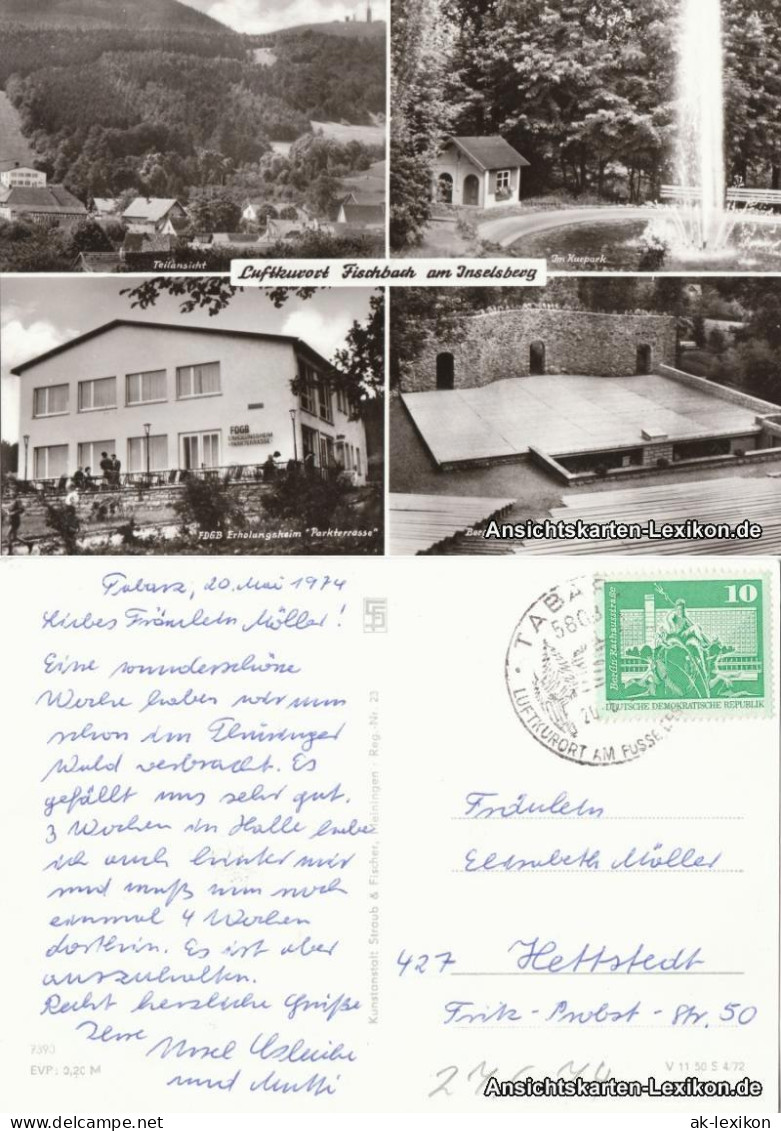 Teilansicht
Im Kurpark
Luftkurort Fischbach am Inselsberg
FDGB
FDGB Erholungsheim "Parkterrasse"
Ansichtskarten-Lexikon.de
Tabarz, 20. Mai 1974
Liebes Fräulein Möller!
Eine wunderschöne
Woche haben wir nun
schon im Thüringer
Wald verbracht. Es
gefällt uns sehr gut.
3 Wochen in Halle habe
ich auch hinter mir
und muß nun noch
einmal 4 Wochen
dorthin. Es ist aber
auszuhalten.
Recht herzliche Grüße
Ihre
und Mutti
7390
EVP: 0,20 M
Kunstanstalt Straub & Fischer, Meiningen · Reg.-Nr. 23
TABA
580
LUFTKURORT AM FUSSE
10
Berlin · Rathausstraße
DEUTSCHE DEMOKRATISCHE REPUBLIK
Fräulein
Elisabeth Möller
427 Hettstedt
Fritz-Probst-Str. 50
V 11 50 S 4/72
Ansichtskarten-Lexikon.de
ak-lexikon